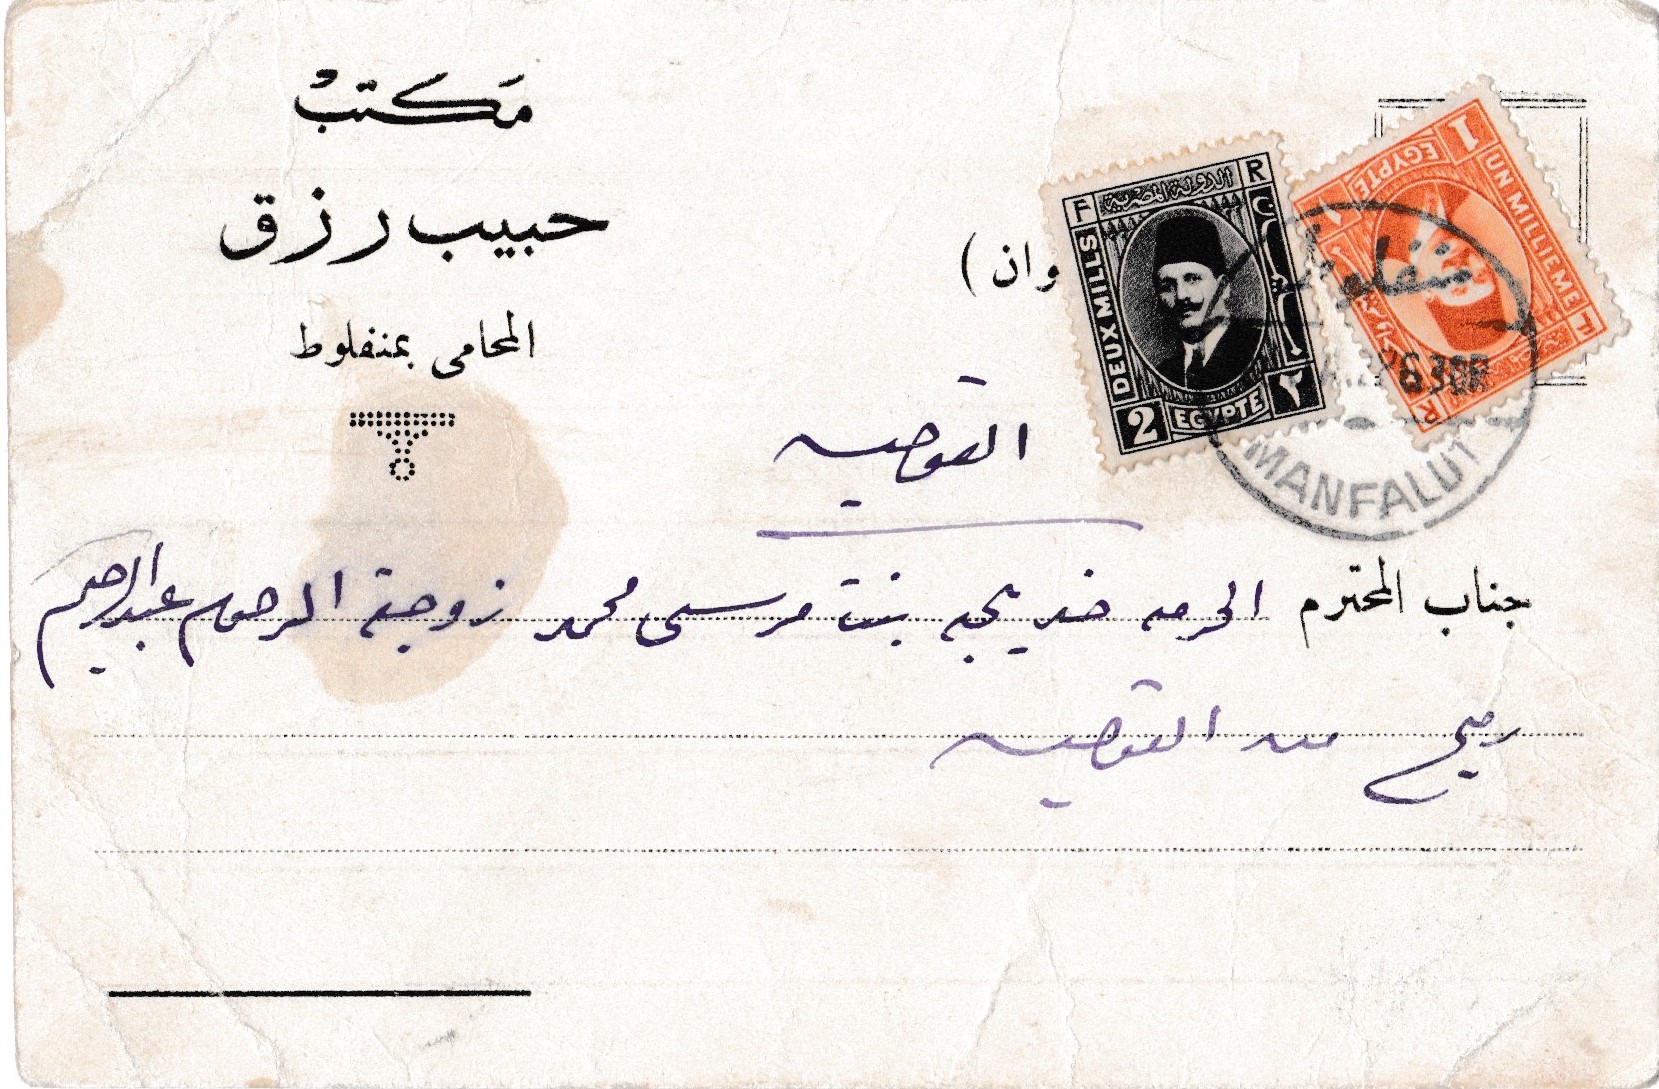 مكتب
حبيب رزق
المحامى بمنفلوط
وان )
F R
الدولة المصرية
DEUX MILLS
2 EGYPTE ٢
1 EGYPTE ١
UN MILLIEME
F R
منفلوط
MANFALUT
القوصيه
جناب المحترم الحرمه خديجه بنت مرسى محمد زوجة المرحوم عبدالرحيم
من القوصيه